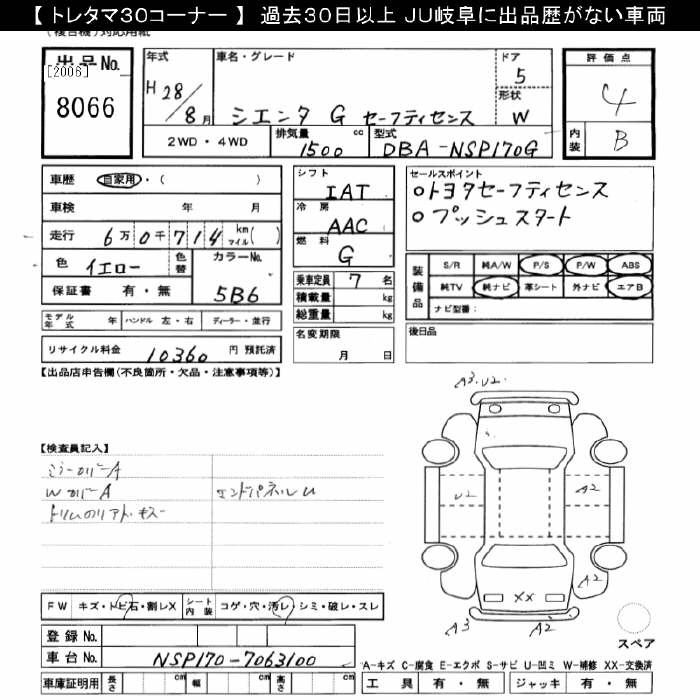 【 トレタマ30コーナー 】 過去30日以上 JU岐阜に出品歴がない車両
(複合機)対応用紙
出品No.
[2006]
8066
年式
H 28/8月
車名・グレード
シエンタ G セーフティセンス
ドア
5
形状
W
評価点
4
内装
B
2WD・4WD
排気量
1500
cc
型式
DBA-NSP170G
車歴
自家用・( )
車検 年 月
走行 6万0千714 km マイル( )
色 イエロー
色替
カラーNo.
5B6
保証書 有・無
シフト
IAT
冷房
AAC
燃料
G
乗車定員 7 名
積載量 kg
総重量 kg
名変期限
月 日
セールスポイント
○トヨタセーフティセンス
○プッシュスタート
装備品
S/R 純A/W P/S P/W ABS
純TV 純ナビ 革シート 外ナビ エアB
ナビ型番:
モデル年式 年 ハンドル 左・右 ディーラー・並行
リサイクル料金 10360 円 預託済
後日品
【出品店申告欄(不良箇所・欠品・注意事項等)】
【検査員記入】
ミラーカバーA
WカバーA
エンドパネルU
A3.U2.
U2
A2
A2
XX
A3
A2
FW キズ・トビ石・割レX
シート内装
コゲ・穴・汚レ・シミ・破レ・スレ
スペア
登録No.
車台No. NSP170-7063100
A-キズ C-腐食 E-エクボ S-サビ U-凹ミ W-補修 XX-交換済
車庫証明用 長さ cm 幅 cm 高さ cm
工具 有・無 ジャッキ 有・無